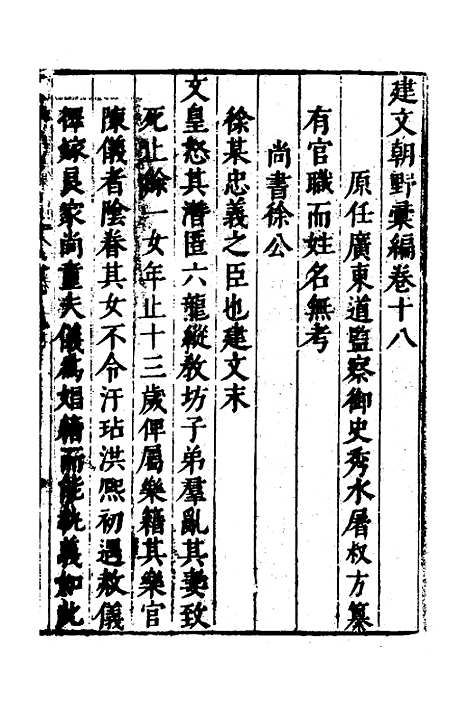 建文朝野彙編卷十八
原任廣東道監察御史秀水屠叔方纂
有官職而姓名無考
尚書徐公
徐某忠義之臣也建文末
文皇怒其潛匿六龍縱教坊子弟羣亂其妻致
死止餘一女年止十三歲俾屬樂籍其樂官
陳儀者陰養其女不令汗玷洪熙初遇赦儀
擇嫁良家尚童夫儀為娼籍而能執義如此